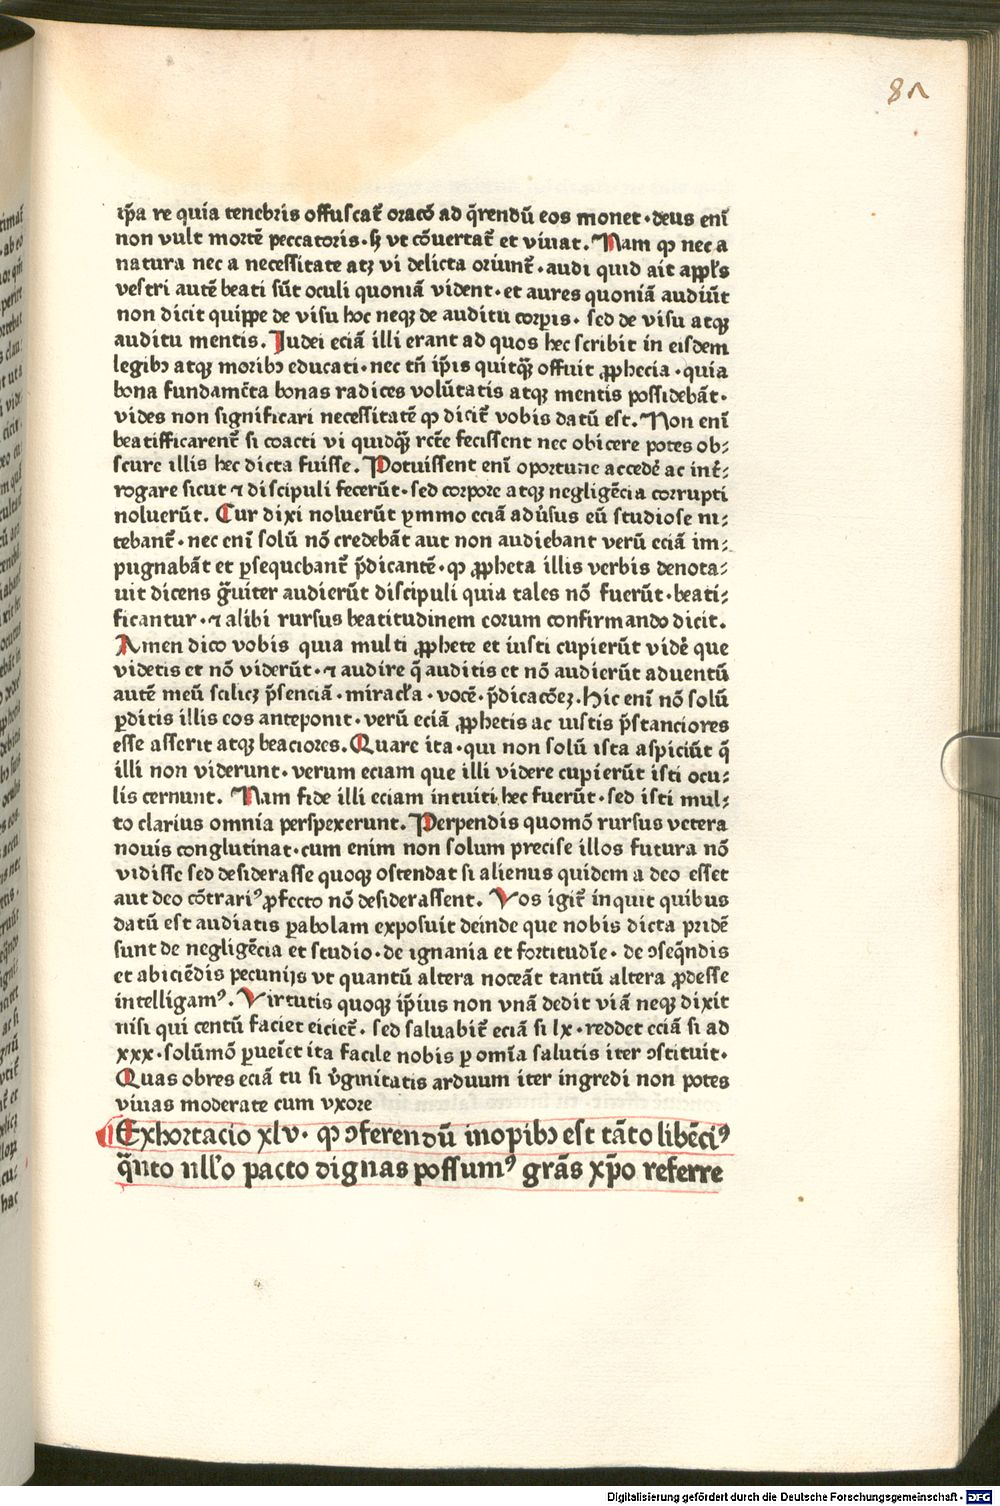 81
ip̃a re quia tenebris offuscat̃ oracõ ad q̃rendũ eos monet · deus enĩ
non vult mortẽ peccatoris · sꝫ vt cõuertat̃ et viuat. Nam ꝙ nec a
natura nec a necessitate atꝫ vi delicta oriunt̃ · audi quid ait appl̃s
vestri autẽ beati sũt oculi quoniã vident · et aures quoniã audiũt
non dicit quippe de visu hoc neqꝫ de auditu corpis · sed de visu atqꝫ
auditu mentis. Judei eciã illi erant ad quos hec scribit in eisdem
legibꝫ atqꝫ moribꝫ educati · nec tñ ip̃is quitqꝫ̃ offuit ꝓphecia · quia
bona fundamẽta bonas radices volũtatis atqꝫ mentis possidebãt ·
vides non significari necessitatẽ ꝙ dicit̃ vobis datũ est. Non enĩ
beatifficarent̃ si coacti vi quidqꝫ̃ rcte fecissent nec obicere potes ob⸗
scure illis hec dicta fuisse. Potuissent enĩ oportune accedẽ ac int̃⸗
rogare sicut ⁊ discipuli fecerũt · sed corpore atqꝫ negligẽcia corrupti
noluerũt. Cur dixi noluerũt ymmo eciã adũsus eũ studiose ni⸗
tebant̃ · nec enĩ solũ nõ credebãt aut non audiebant verũ eciã im⸗
pugnabãt et ꝑsequebant̃ p̃dicantẽ · ꝙ ꝓpheta illis verbis denota⸗
uit dicens g̃uiter audierũt discipuli quia tales nõ fuerũt · beati⸗
ficantur · ⁊ alibi rursus beatitudinem eorum confirmando dicit.
Amen dico vobis quia multi ꝓphete et iusti cupierũt vidẽ que
videtis et nõ viderũt · ⁊ audire q̃ auditis et nõ audierũt aduentũ
autẽ meũ scilicꝫ p̃senciã · miracl̃a · vocẽ · p̃dicacõeꝫ. Hic enĩ nõ solũ
ꝑditis illis eos anteponit · verũ eciã ꝓphetis ac iustis p̃stanciores
esse asserit atqꝫ beaciores. Quare ita · qui non solũ ista aspiciũt q̃
illi non viderunt · verum eciam que illi videre cupierũt isti ocu⸗
lis cernunt. Nam fide illi eciam intuiti hec fuerũt · sed isti mul⸗
to clarius omnia perspexerunt. Perpendis quomõ rursus vetera
nouis conglutinat · cum enim non solum precise illos futura nõ
vidisse sed desiderasse quoqꝫ ostendat si alienus quidem a deo esset
aut deo cõtrariꝰ ꝓfecto nõ desiderassent. Vos igit̃ inquit quibus
datũ est audiatis ꝑabolam exposuit deinde que nobis dicta pridẽ
sunt de negligẽcia et studio · de ignania et fortitudĩe · de ↄseq̃ndis
et abiciẽdis pecunijs vt quantũ altera noceãt tantũ altera ꝓdesse
intelligamꝰ. Virtutis quoqꝫ ip̃ius non vnã dedit viã neqꝫ dixit
nisi qui centũ faciet eiciet̃ · sed saluabit̃ eciã si lx · reddet eciã si ad
xxx · solũmõ ꝑueĩet ita facile nobis ꝑ omĩa salutis iter ↄstituit ·
Quas obres eciã tu si ṽginitatis arduum iter ingredi non potes
viuas moderate cum vxore
Exhortacio xlv · ꝙ ↄferendũ inopibꝫ est tãto libẽciꝰ
q̃nto nll̃o pacto dignas possumꝰ grãs xp̃o referre
Digitalisierung gefördert durch die Deutsche Forschungsgemeinschaft - DFG